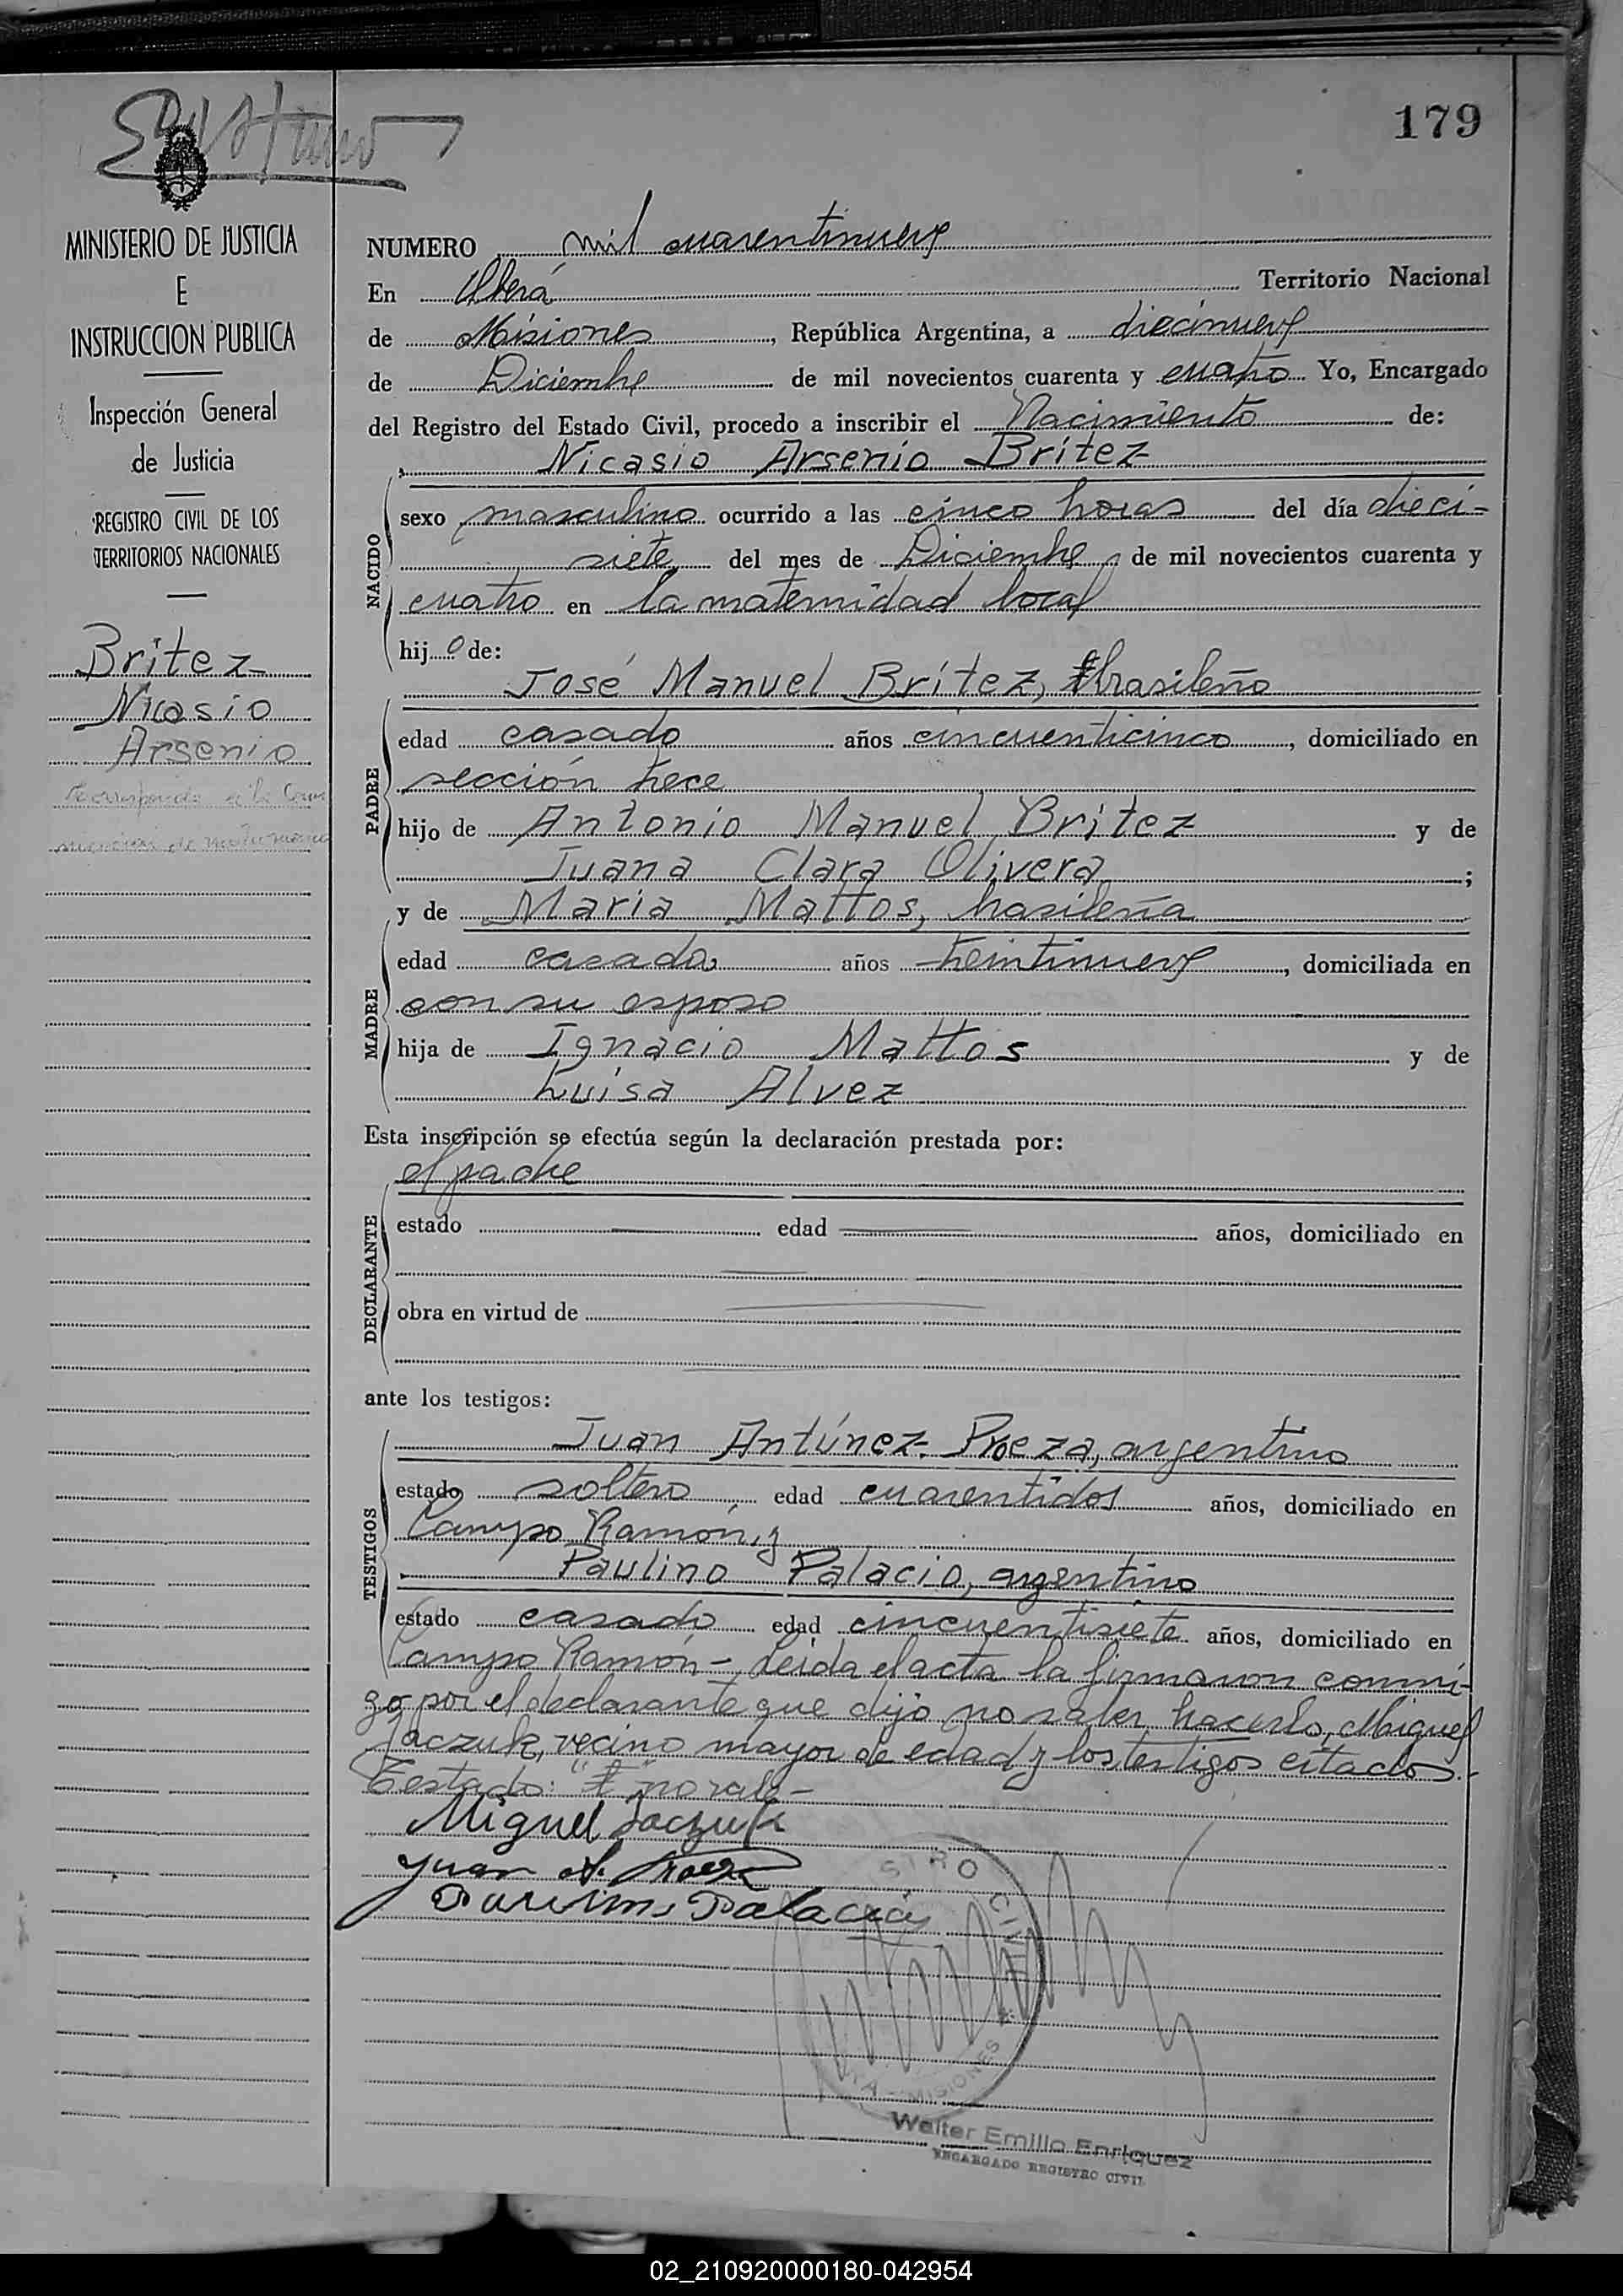 179
MINISTERIO DE JUSTICIA
E
INSTRUCCION PUBLICA
Inspección General
de Justicia
REGISTRO CIVIL DE LOS
TERRITORIOS NACIONALES
Britez
Nicasio
Arsenio
NUMERO mil cuarentinueve
En Oberá Territorio Nacional
de Misiones, República Argentina, a diecinueve
de Diciembre de mil novecientos cuarenta y cuatro Yo, Encargado
del Registro del Estado Civil, procedo a inscribir el Nacimiento de:
Nicasio Arsenio Brítez
NACIDO
sexo masculino ocurrido a las cinco horas del día dieci-
siete del mes de Diciembre de mil novecientos cuarenta y
cuatro en la maternidad local
hijo de:
José Manuel Brítez, brasileño
PADRE
edad casado años cincuenticinco, domiciliado en
sección trece
hijo de Antonio Manuel Brítez y de
Juana Clara Olivera;
y de María Mattos, brasileña
MADRE
edad casada años treintinueve, domiciliada en
con su esposo
hija de Ignacio Mattos y de
Luisa Alvez
Esta inscripción se efectúa según la declaración prestada por:
el padre
DECLARANTE
estado edad años, domiciliado en
obra en virtud de
ante los testigos:
TESTIGOS
Juan Antúnez Proeza, argentino
estado soltero edad cuarentidos años, domiciliado en
Campo Ramón, y
Paulino Palacio, argentino
estado casado edad cincuentisiete años, domiciliado en
Campo Ramón - Leida el acta la firmaron conmi-
go, por el declarante que dijo no saber hacerlo, Miguel
Jaczuk, vecino mayor de edad y los testigos citados.-
Testado: "t" no vale-
Miguel Jaczuk
Juan A. Proeza
Paulino Palacio
MISIONES
Walter Emilio Enriquez
ENCARGADO REGISTRO CIVIL
02_210920000180-042954